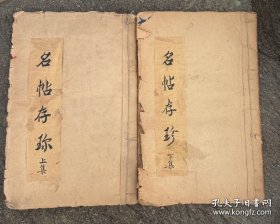 名帖存珎
上集
名帖存珍
下集
孔夫子旧书网